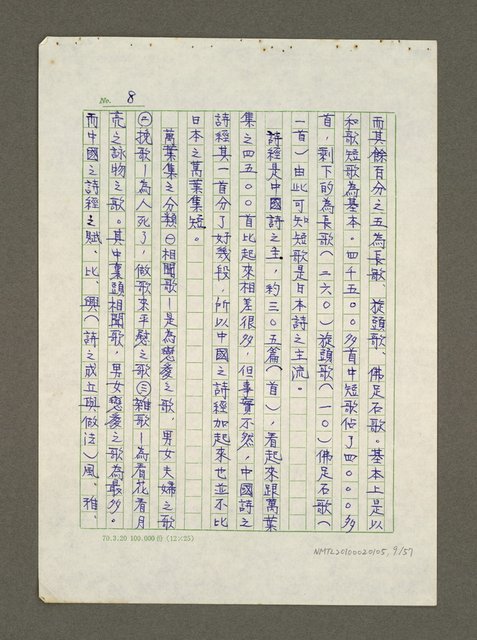 No. 8
而其餘百分之五為長歌、旋頭歌、佛足石歌。基本上是以
和歌短歌為基本。四千五〇〇多首中短歌佔了四〇〇〇多
首，剩下的為長歌（二六〇）旋頭歌（一〇）佛足石歌（
一首）由此可知短歌是日本詩之主流。
詩經是中國詩之主，約三〇五篇（首），看起來跟萬葉
集之四五〇〇首比起來相差很多，但事實不然，中國詩之
詩經其一首分了好幾段，所以中國之詩經加起來也並不比
日本之萬葉集短。
萬葉集之分類㊀相聞歌—是為戀愛之歌，男女夫婦之歌
㊁挽歌—為人死了，做歌來弔慰之歌㊂雜歌—為看花看月
亮之詠物之歌。其中葉頭相聞歌，男女戀愛之歌為最多。
而中國之詩經之賦、比、興（詩之成立與做法）風、雅、
70.3.20 100.000份（12×25）
NMTL20100020105, 9/57